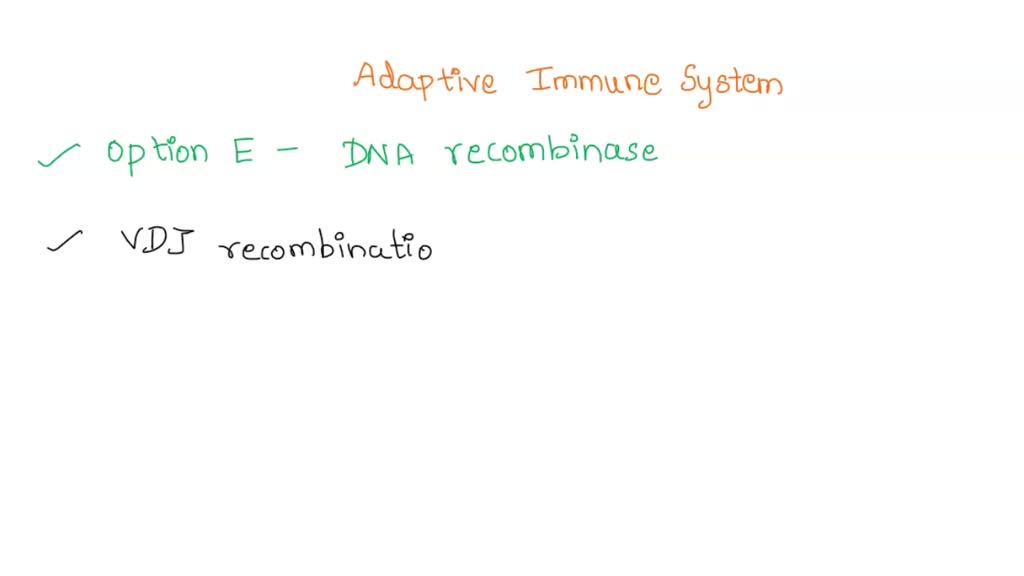 Adaptive Immune System
✓ Option E - DNA recombinase
✓ VDJ recombinatio